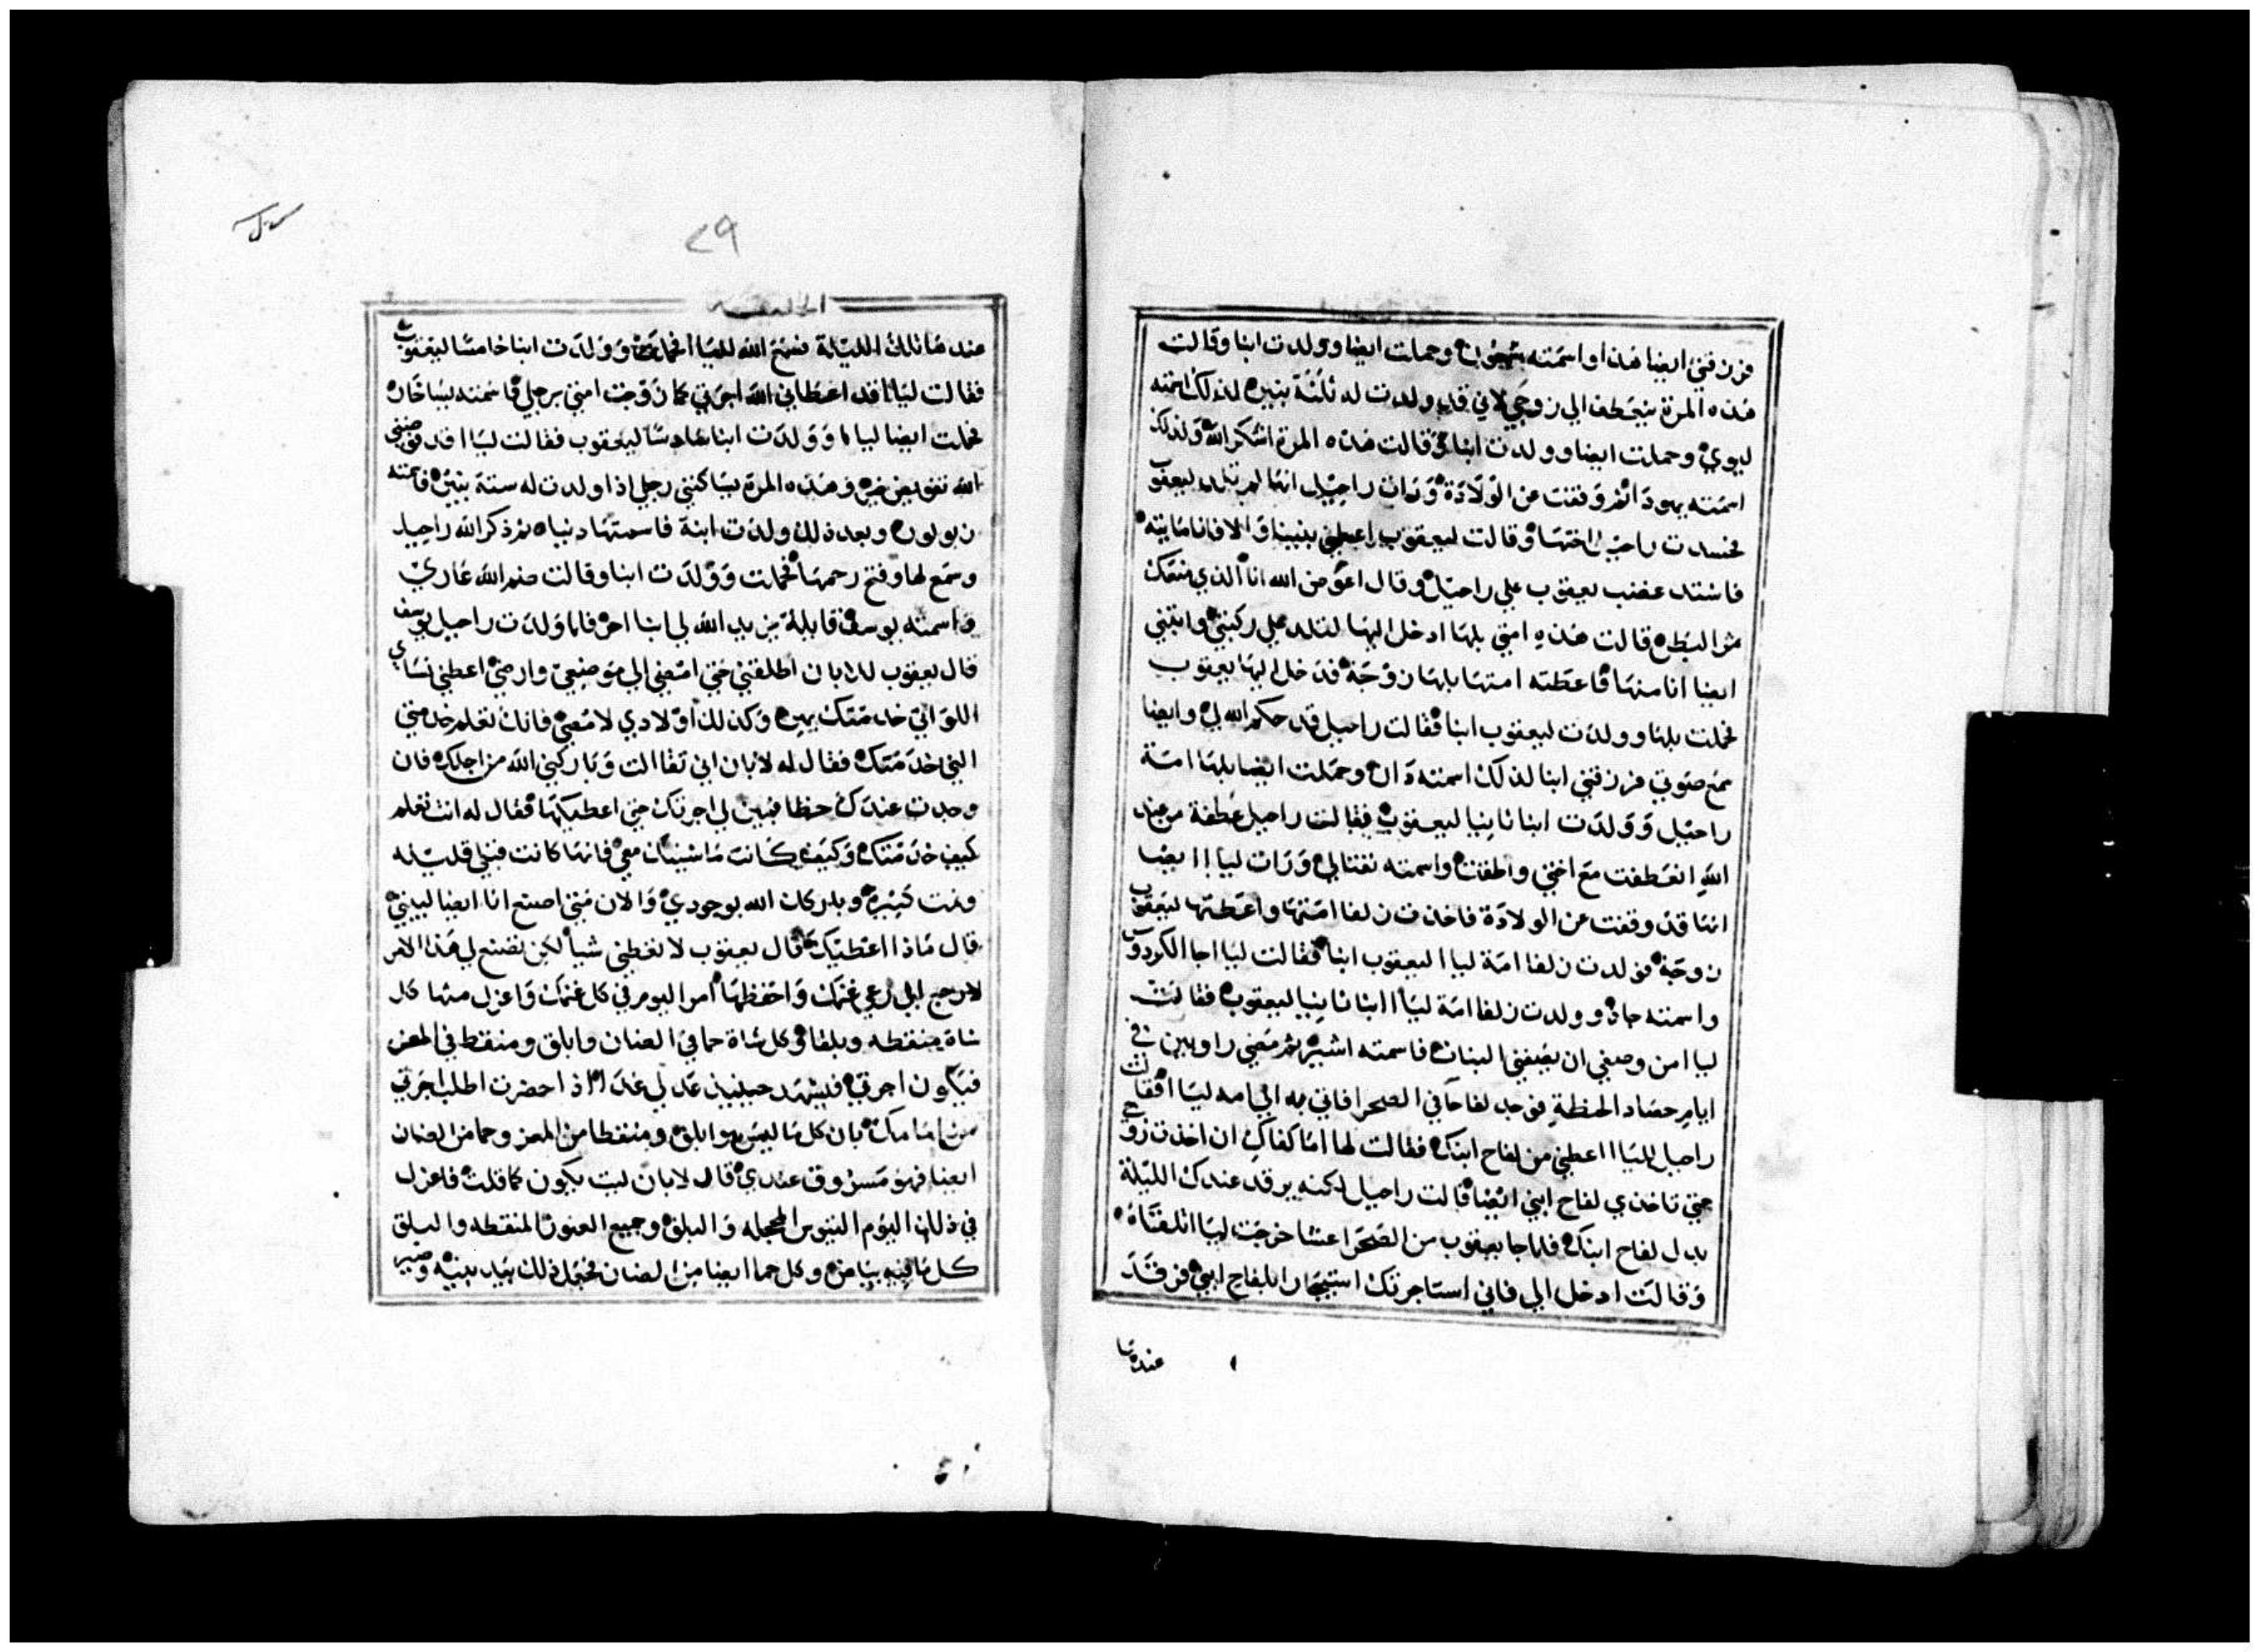 فرزقني ايضا هذا واسمته شمعون وحملت ايضا وولدت ابنا وقالت
هذه المرة ينعطف الي زوجي لاني قد ولدت له ثلثة بنين لذلك اسمته
ليوي وحملت ايضا وولدت ابنا وقالت هذه المرة اشكر الله ولذلك
اسمته يهودا ثم وقفت عن الولادة ورات راحيل انها لم تلد ليعقوب
فحسدت راحيل اختها وقالت ليعقوب اعطني بنينا والا فانا مايته
فاشتد غضب يعقوب علي راحيل وقال اعوض الله انا الذي منعك
ثمر البطن قالت هذه امتي بلها ادخل اليها لتلد علي ركبتي وابتني
ايضا انا منها فاعطته امتها بلها زوجة فدخل اليها يعقوب
فحملت بلها وولدت ليعقوب ابنا فقالت راحيل قد حكم الله لي وايضا
سمع صوتي فرزقني ابنا لذلك اسمته دان وحملت ايضا بلها امة
راحيل وولدت ابنا ثانيا ليعقوب فقالت راحيل عطفة من عند
الله انعطفت مع اختي والحقت واسمته نفتالي ورات ليا ايضا
انها قد وقفت عن الولادة فاخذت زلفا امتها واعطتها ليعقوب
زوجة فولدت زلفا امة ليا ليعقوب ابنا فقالت ليا جا الكردوس
واسمته جاد وولدت زلفا امة ليا ابنا ثانيا ليعقوب فقالت
ليا من وصفي ان يصفني البنات فاسمته اشير ثم مضي راوبين في
ايام حصاد الحنطة فوجد لفاحا في الصحرا فاتي به الي امه ليا فقالت
راحيل لليا اعطني من لفاح ابنك فقالت لها اما كفاك ان اخذت زوجي
حتي تاخذي لفاح ابني ايضا قالت راحيل لكنه يرقد عندك الليلة
بدل لفاح ابنك فلما جا يعقوب من الصحرا عشا خرجت ليا تلقاه
وقالت ادخل الي فاني استاجرتك استيجارا بلفاح ابني فرقد
عندها
٢٩
الخليقة
عندها تلك الليلة فسمع الله لليا فحملت وولدت ابنا خامسا ليعقوب
فقالت ليا قد اعطاني الله اجرتي كما زوجت امتي برجلي فاسمته يساخار
فحملت ايضا ليا وولدت ابنا سادسا ليعقوب فقالت ليا قد عوضني
الله تفويض خير وهذه المرة يساكنني رجلي اذا ولدت له ستة بنين فاسمته
زبولون وبعد ذلك ولدت ابنة فاسمتها دنيا ثم ذكر الله راحيل
وسمع لها وفتح رحمها فحملت وولدت ابنا وقالت ضم الله عاري
واسمته يوسف قايلة يزيد الله لي ابنا اخر فلما ولدت راحيل يوسف
قال يعقوب للابان اطلقني حتي امضي الي موضعي وارضي اعطني نساي
اللواتي خدمتك بهن وكذلك اولادي لامضي فانك تعلم خدمتي
التي خدمتك فقال له لابان اني تفاالت وباركني الله من اجلك فان
وجدت عندك حظا فبين لي اجرتك حتي اعطيكها فقال له انت تعلم
كيف خدمتك وكيف كانت ماشيتك معي فانها كانت قبلي قليله
ونمت كثيره وبارك الله بوجودي والان متي اصنع انا ايضا لبيتي
قال ماذا اعطيك قال يعقوب لا تعطني شيا لكن تصنع لي هذا الامر
لارجع الي رعي غنمك واحفظها امر اليوم في كل غنمك واعزل منها كل
شاة منقطه وبلقا وكل شاة حما في الضان وابلق ومنقط في المعز
فيكون اجرتي فليشهد حينيذ عدلي غدا اذا حضرت اطلب اجرتي
من امامك بان كل ما ليس هو ابلق ومنقطا من المعز وحما من الضان
ايضا فهو مسروق عندي قال لابان ليت يكون كما قلت فاعزل
في ذلك اليوم التيوس المحجله والبلق وجميع العنوز المنقطه والبلق
كل ما فيه بياض وكل حما ايضا من الضان فجعل ذلك بيد بنيه وصير